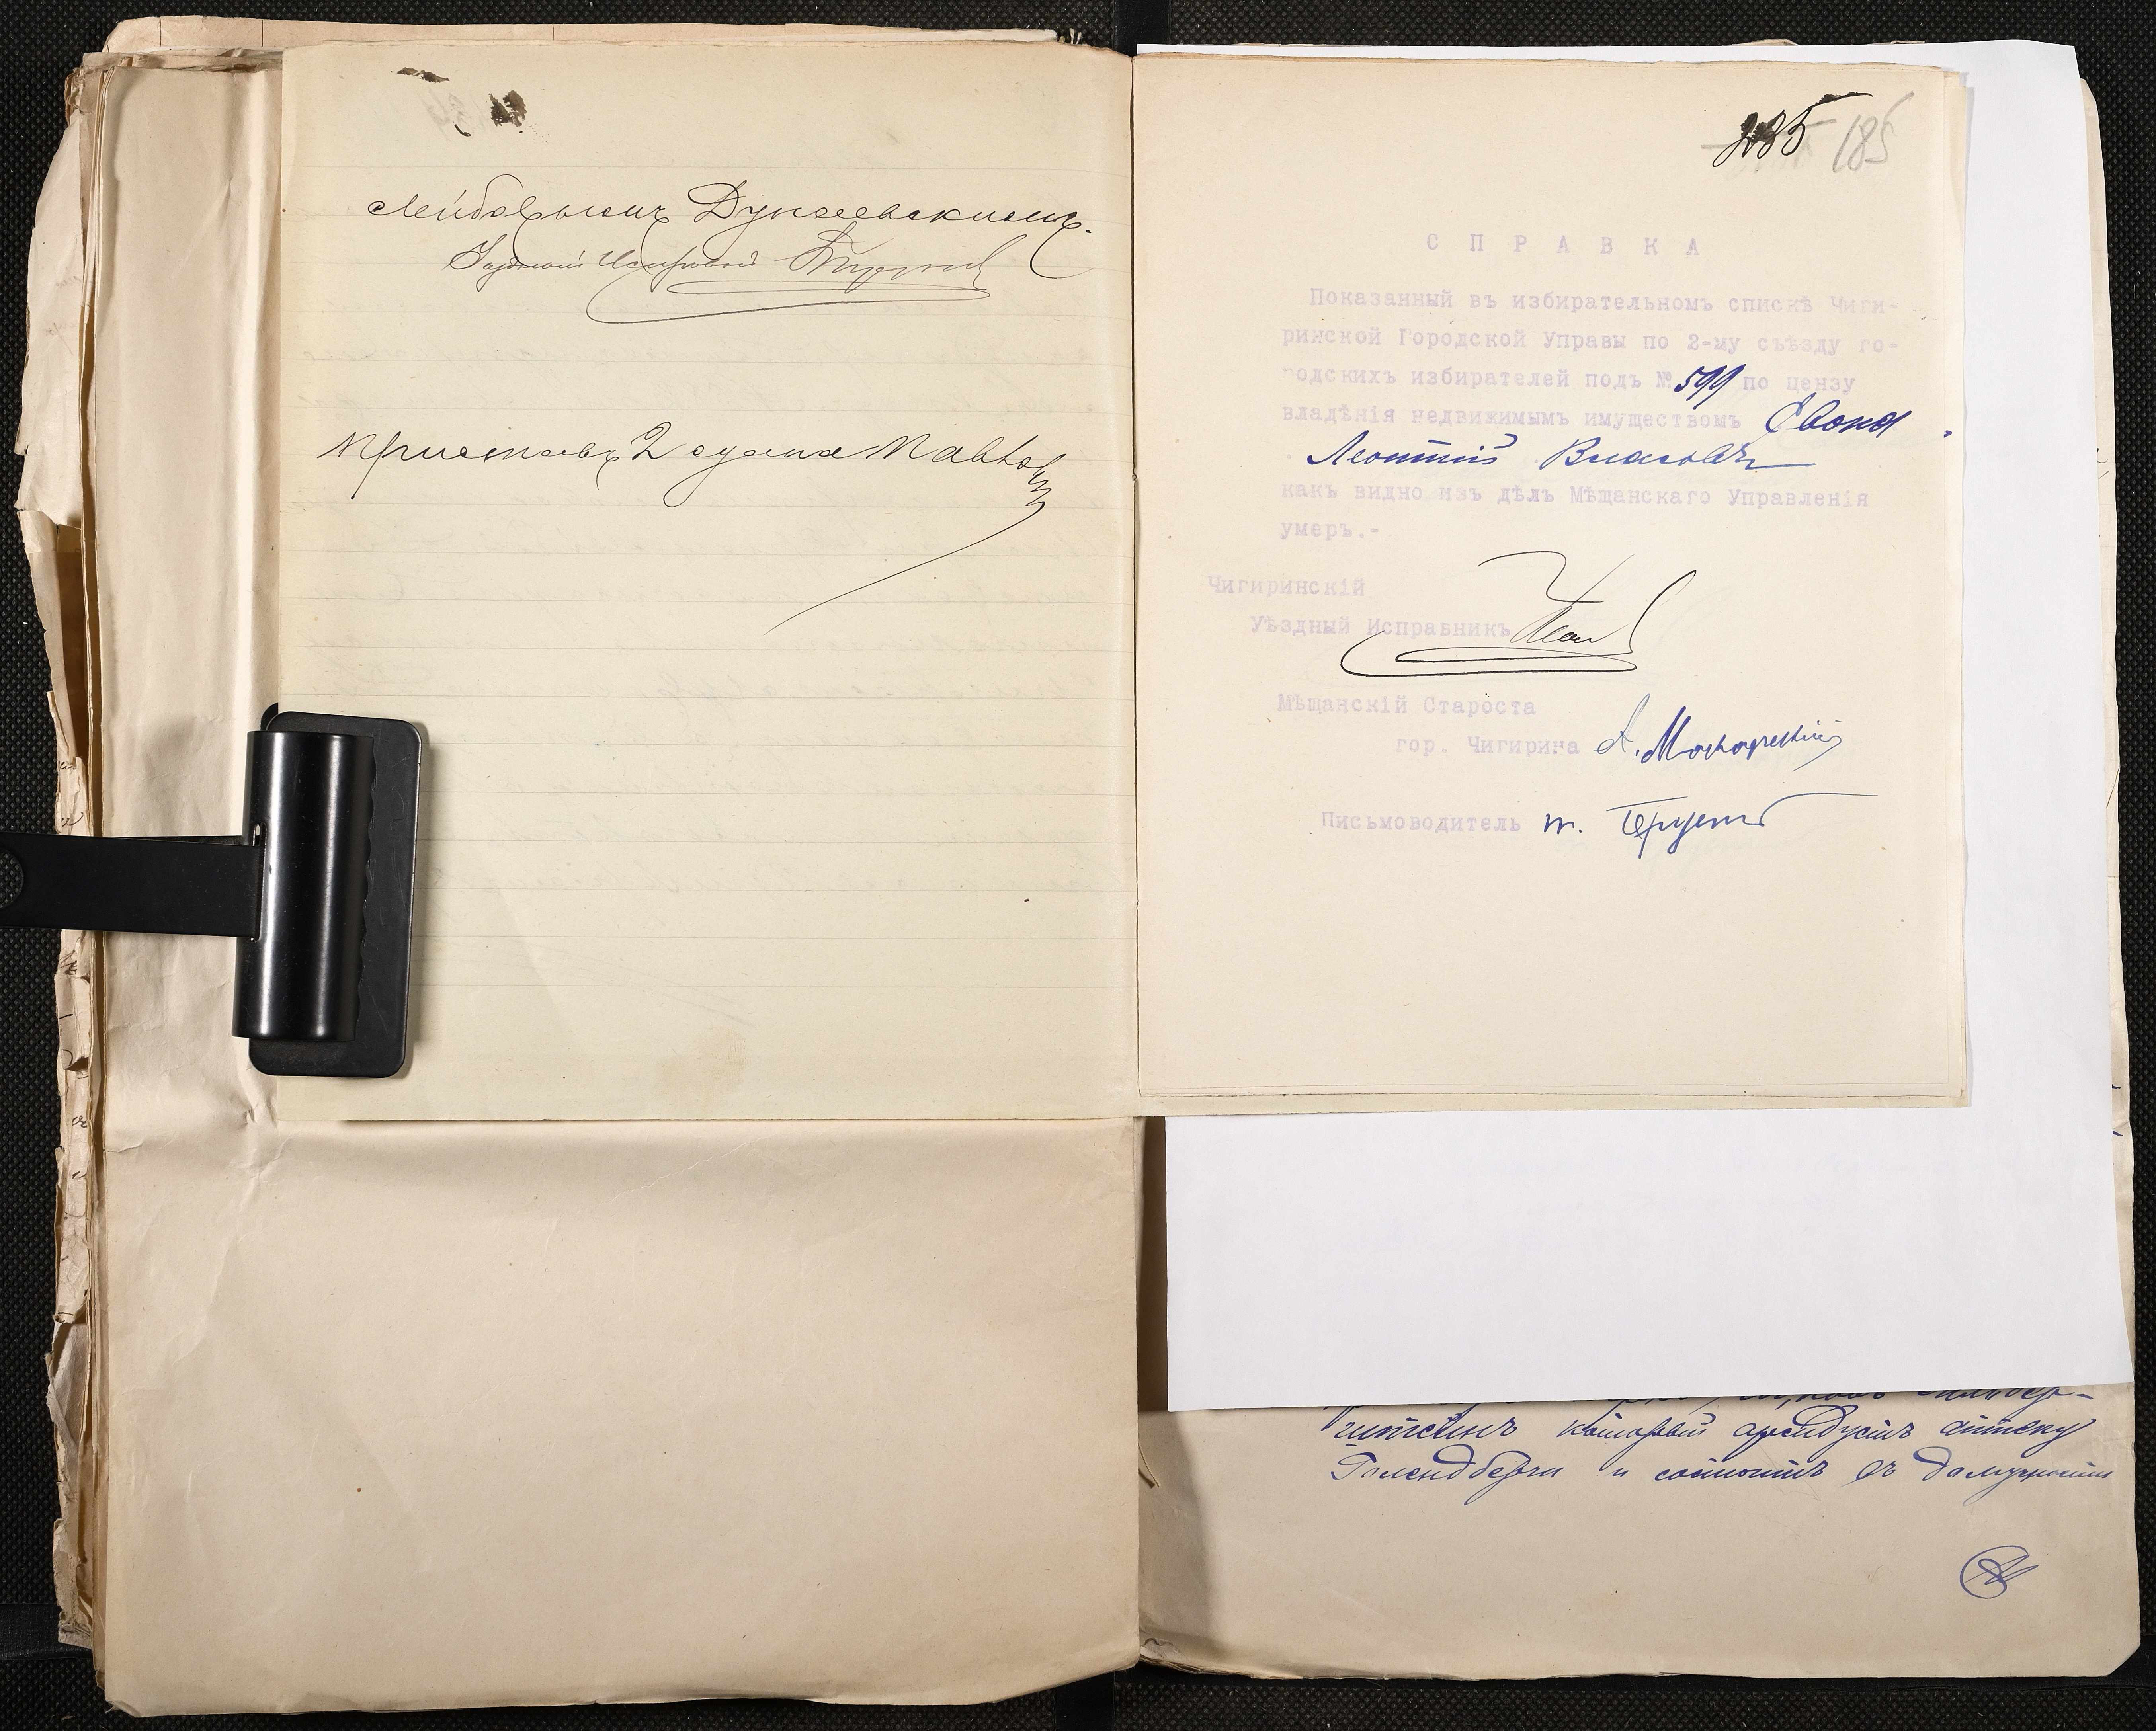 Лейбовымъ Дунаевскимъ.
Уѣздный Исправникъ
Приставъ 2 стана
185
С П Р А В К А
Показанный въ избирательномъ спискѣ Чиги-
ринской Городской Управы по 2-му съѣзду го-
родскихъ избирателей подъ № 599 по цензу
владѣнія недвижимымъ имуществомъ
Леонтій Власовъ
какъ видно изъ дѣлъ Мѣщанскаго Управленія
умеръ.-
Чигиринскій
Уѣздный Исправникъ
Мѣщанскій Староста
гор. Чигирина А.
Письмоводитель
который арендуетъ аптеку
и состоитъ въ